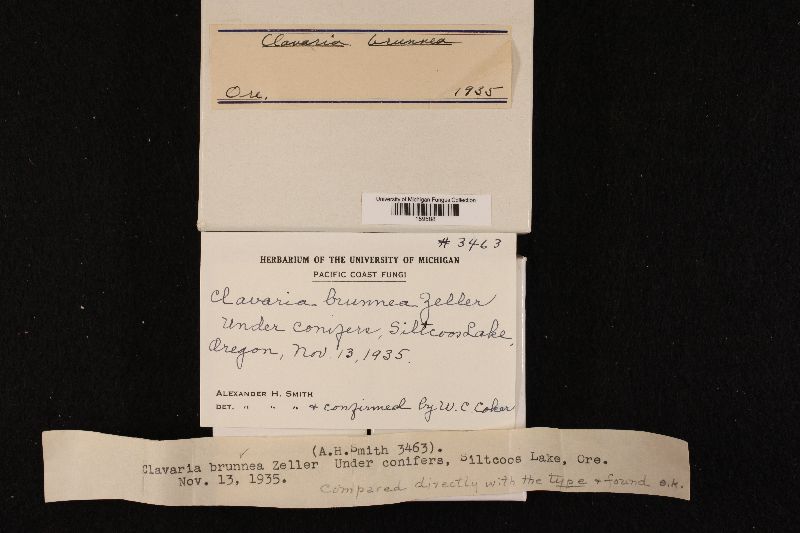 Clavaria brunnea
Ore. 1935
University of Michigan Fungus Collection
# 3463
HERBARIUM OF THE UNIVERSITY OF MICHIGAN
PACIFIC COAST FUNGI
Clavaria brunnea Zeller
Under conifers, Siltcoos Lake,
Oregon, Nov. 13, 1935.
ALEXANDER H. SMITH
DET. " " " & confirmed by W. C Coker
(A.H.Smith 3463).
Clavaria brunnea Zeller Under conifers, Siltcoos Lake, Ore.
Nov. 13, 1935.
Compared directly with the type & found o.k.